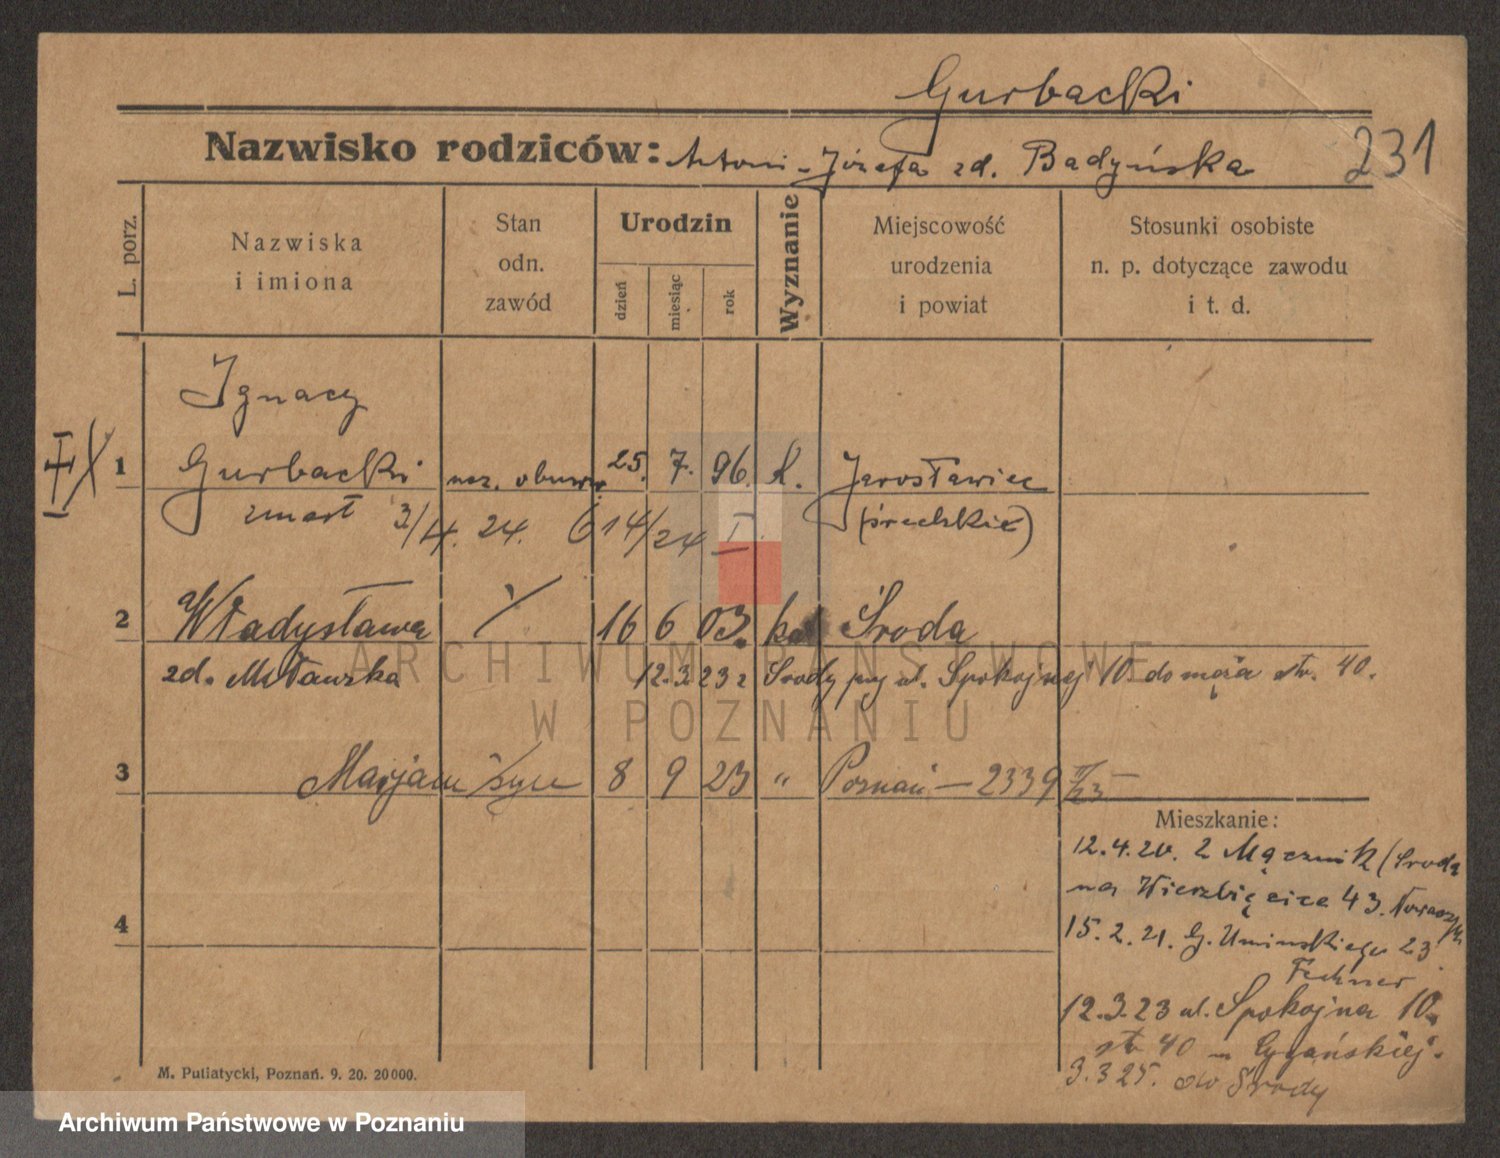 Gurbacki
Nazwisko rodziców: Antoni - Józefa zd. Badyńska
231
L. porz.
Nazwiska i imiona
Stan odn. zawód
Urodzin
dzień
miesiąc
rok
Wyznanie
Miejscowość urodzenia i powiat
Stosunki osobiste n. p. dotyczące zawodu i t. d.
Ignacy
1 Gurbacki 25. 7. 96. k. Jarosławiec
zmarł 3/4. 24. 614/24 I. (średzkie)
2 Władysława 16 6 03. kat Środa
zd. Mławska 12.3.23 z Środy ul. Spokojnej 10. do męża str. 40.
3 Marjan syn 8 9 23 " Poznań - 2339
4
Mieszkanie:
12.4.20. z Mącznik (Środa
na Wierzbięcice 43.
15.2.21. G. Umińskiego 23
Fechner
12.3.23 ul. Spokojna 10.
str 40
3.3 25. do Środy
M. Putiatycki, Poznań. 9. 20. 20000.
ARCHIWUM PAŃSTWOWE
W POZNANIU
Archiwum Państwowe w Poznaniu